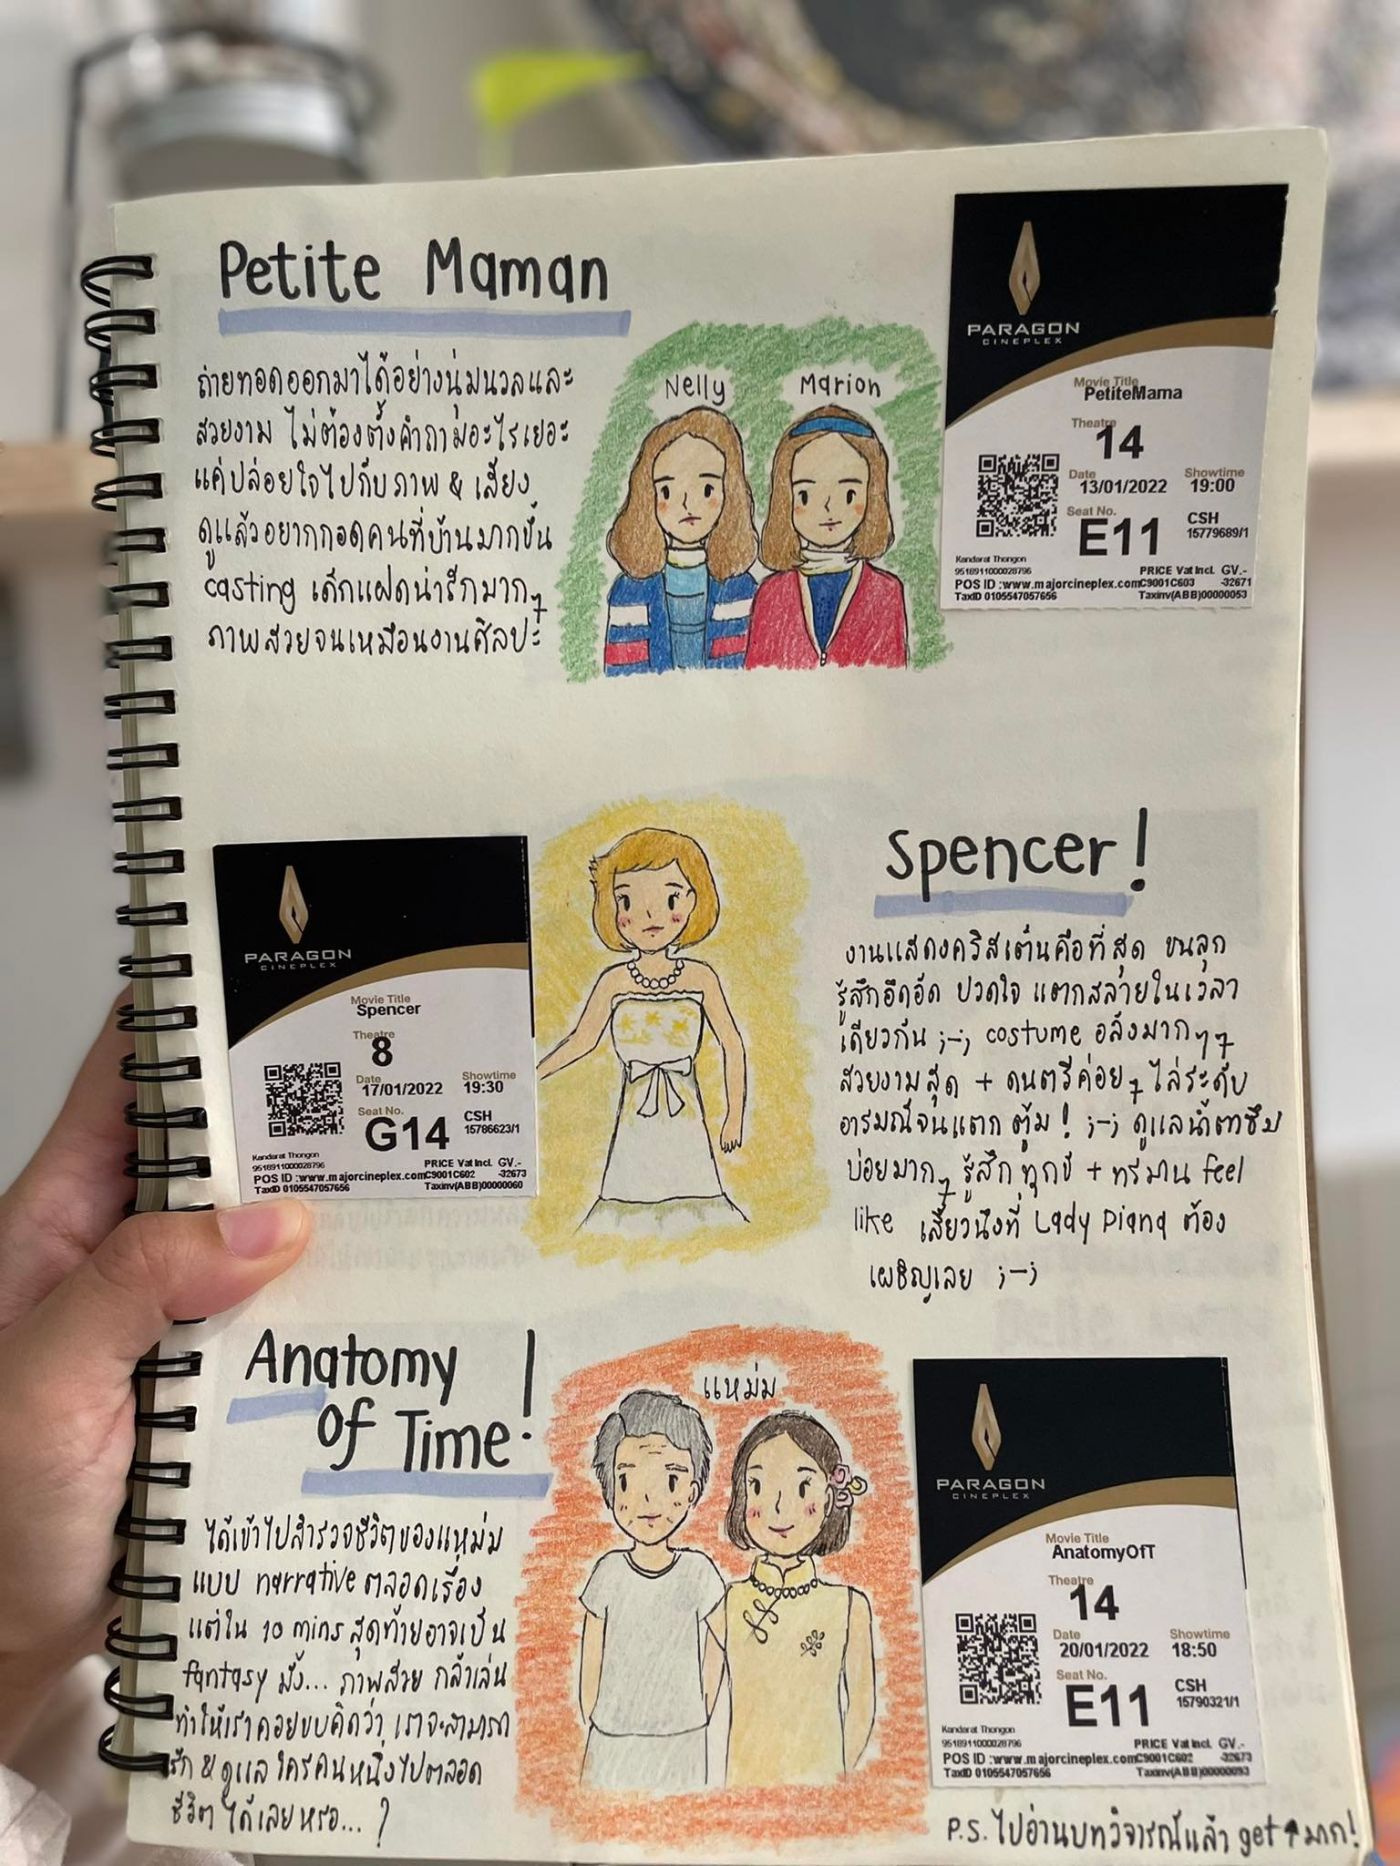 Petite Maman
ถ่ายทอดออกมาได้อย่างนุ่มนวลและ
สวยงาม ไม่ต้องตั้งคำถามอะไรเยอะ
แค่ปล่อยใจไปกับภาพ & เสียง
ดูแล้วอยากกอดคนที่บ้านมากขึ้น
casting เด็กแฝดน่ารักมากๆ
ภาพสวยจนเหมือนงานศิลปะ
Nelly Marion
PARAGON
CINEPLEX
Movie Title
PetiteMama
Theatre
14
Date Showtime
13/01/2022 19:00
Seat No. CSH
E11 15779689/1
Kandarat Thongon
9518911000028796 PRICE Vat Incl. GV.-
POS ID :www.majorcineplex.comC9001C603 -32671
TaxID 0105547057656 Taxinv(ABB)00000053
PARAGON
CINEPLEX
Movie Title
Spencer
Theatre
8
Date Showtime
17/01/2022 19:30
Seat No. CSH
G14 15786623/1
Kandarat Thongon
9518911000028796 PRICE Vat Incl. GV.-
POS ID :www.majorcineplex.comC9001C602 -32673
TaxID 0105547057656 Taxinv(ABB)00000060
Spencer!
งานแสดงคริสเต็นคือที่สุด ขนลุก
รู้สึกอึดอัด ปวดใจ แตกสลายในเวลา
เดียวกัน ;-; costume อลังมากๆๆ
สวยงามสุด + ดนตรีค่อยๆ ไล่ระดับ
อารมณ์จนแตก ตู้ม! ;-; ดูแลน้ำตาซึม
บ่อยมากๆ รู้สึก ทุกข์ + ทรมาน feel
like เสี้ยวนึงที่ Lady Diana ต้อง
เผชิญเลย ;-;
Anatomy
Of Time!
ได้เข้าไปสำรวจชีวิตของแหม่ม
แบบ narrative ตลอดเรื่อง
แต่ใน 10 mins สุดท้ายอาจเป็น
fantasy มั้ง... ภาพสวย กล้าเล่น
ทำให้เราคอยขบคิดว่า เราจะสามารถ
รัก & ดูแล ใครคนหนึ่งไปตลอด
ชีวิต ได้เลยหรอ...?
แหม่ม
PARAGON
CINEPLEX
Movie Title
AnatomyOfT
Theatre
14
Date Showtime
20/01/2022 18:50
Seat No. CSH
E11 15790321/1
Kandarat Thongon
9518911000028796 PRICE Vat Incl. GV.-
POS ID :www.majorcineplex.comC9001C602 -32673
TaxID 0105547057656 Taxinv(ABB)00000093
P.S. ไปอ่านบทวิจารณ์แล้ว get ↑ มาก!